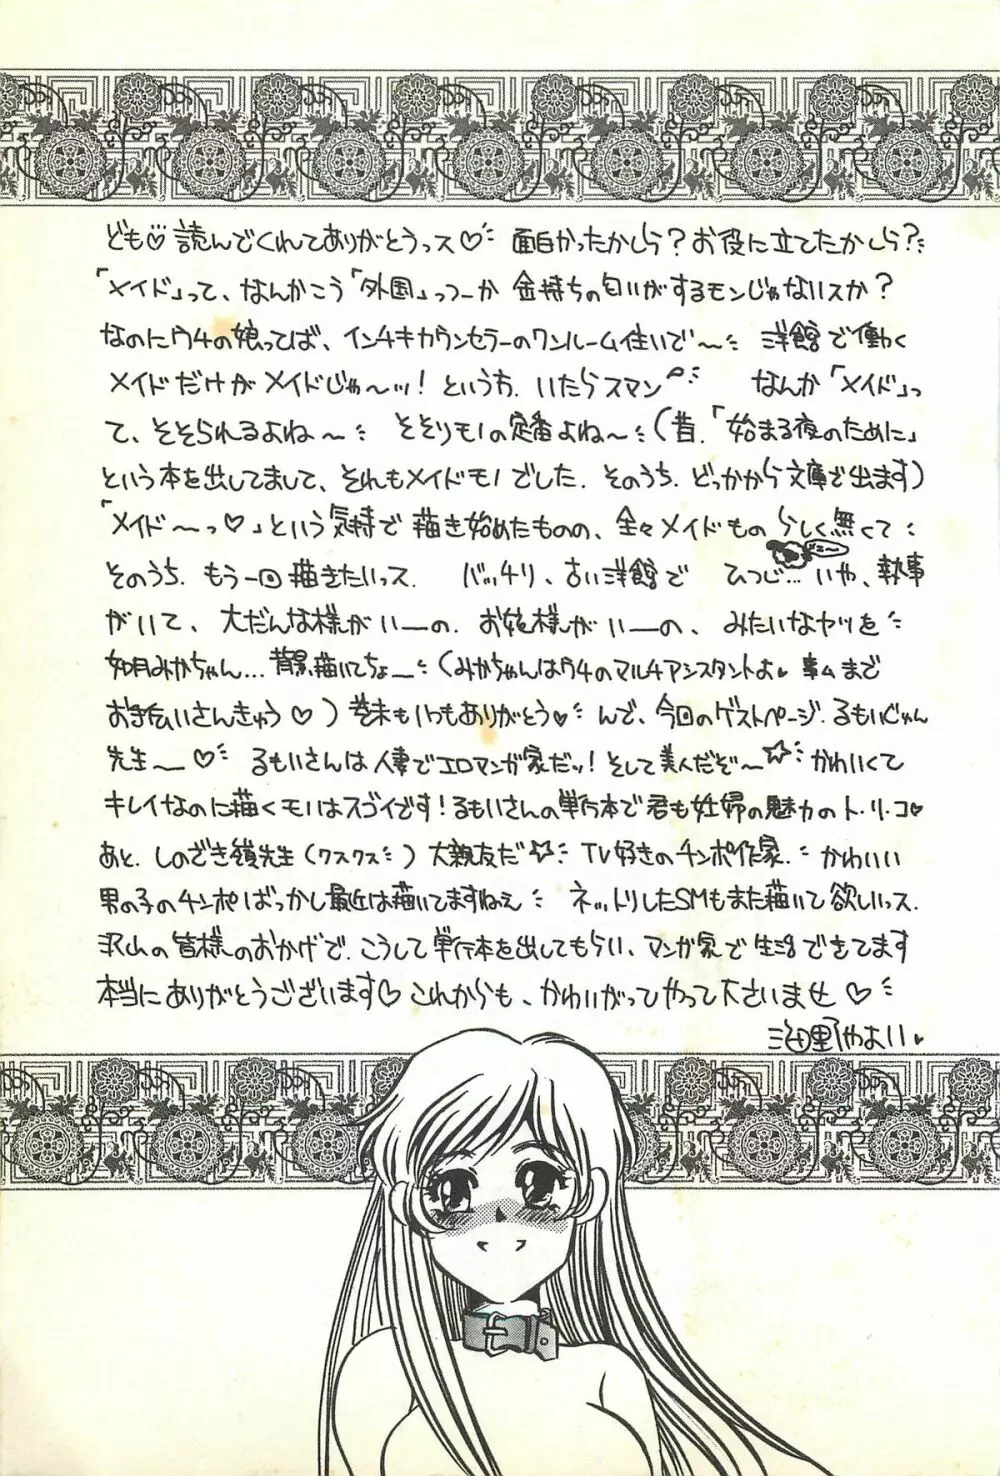 ども♡読んでくれてありがとうっス♡ 面白かったかしら？お役に立てたかしら？
「メイド」って、なんかこう「外国」っつーか 金持ちの匂いがするモンじゃないスか？
なのにウチの娘ってば、インチキカウンセラーのワンルーム住いで〜 洋館で働く
メイドだけがメイドじゃ〜ッ！というわ、いたらスマン なんか「メイド」っ
て、そそられるよね〜 そそりモノの定番よね〜（昔、「始まる夜のために」
という本を出してまして、それもメイドモノでした。そのうち、どっかから文庫で出ます）
「メイド〜っ♡」という気持で描き始めたものの、全々メイドものらしく無くて
そのうち、もう一回描きたいっス． バッチリ、古い洋館で ひつじ…いや、執事
がいて、大だんな様がいーの．お嬢様がいーの、みたいなヤツを
如月みかちゃん…背景描いてちょー（みかちゃんはウチのマルチアシスタントよ♥ 事ムまで
お手伝いさんきゅう♡）巻末もいつもありがとう♥ んで、今回のゲストページ．るもいじゅん
先生〜♡ るもいさんは人妻でエロマンガ家だッ！そして美人だぞ〜☆ かわいくて
キレイなのに描くモノはスゴイです！るもいさんの単行本で君も妊婦の魅力のト・リ・コ♥
あと．しのざき嶺先生（クスクス）大親友だ☆ TV好きのチンポ作家． かわいい
男の子のチンポばっかし最近は描いてますねえ ネットリしたSMもまた描いて欲しいっス．
沢山の皆様のおかげで．こうして単行本を出してもらい、マンガ家で生活できてます
本当にありがとうございます♡これからも、かわいがってやって下さいませ♡
海野やよい♥